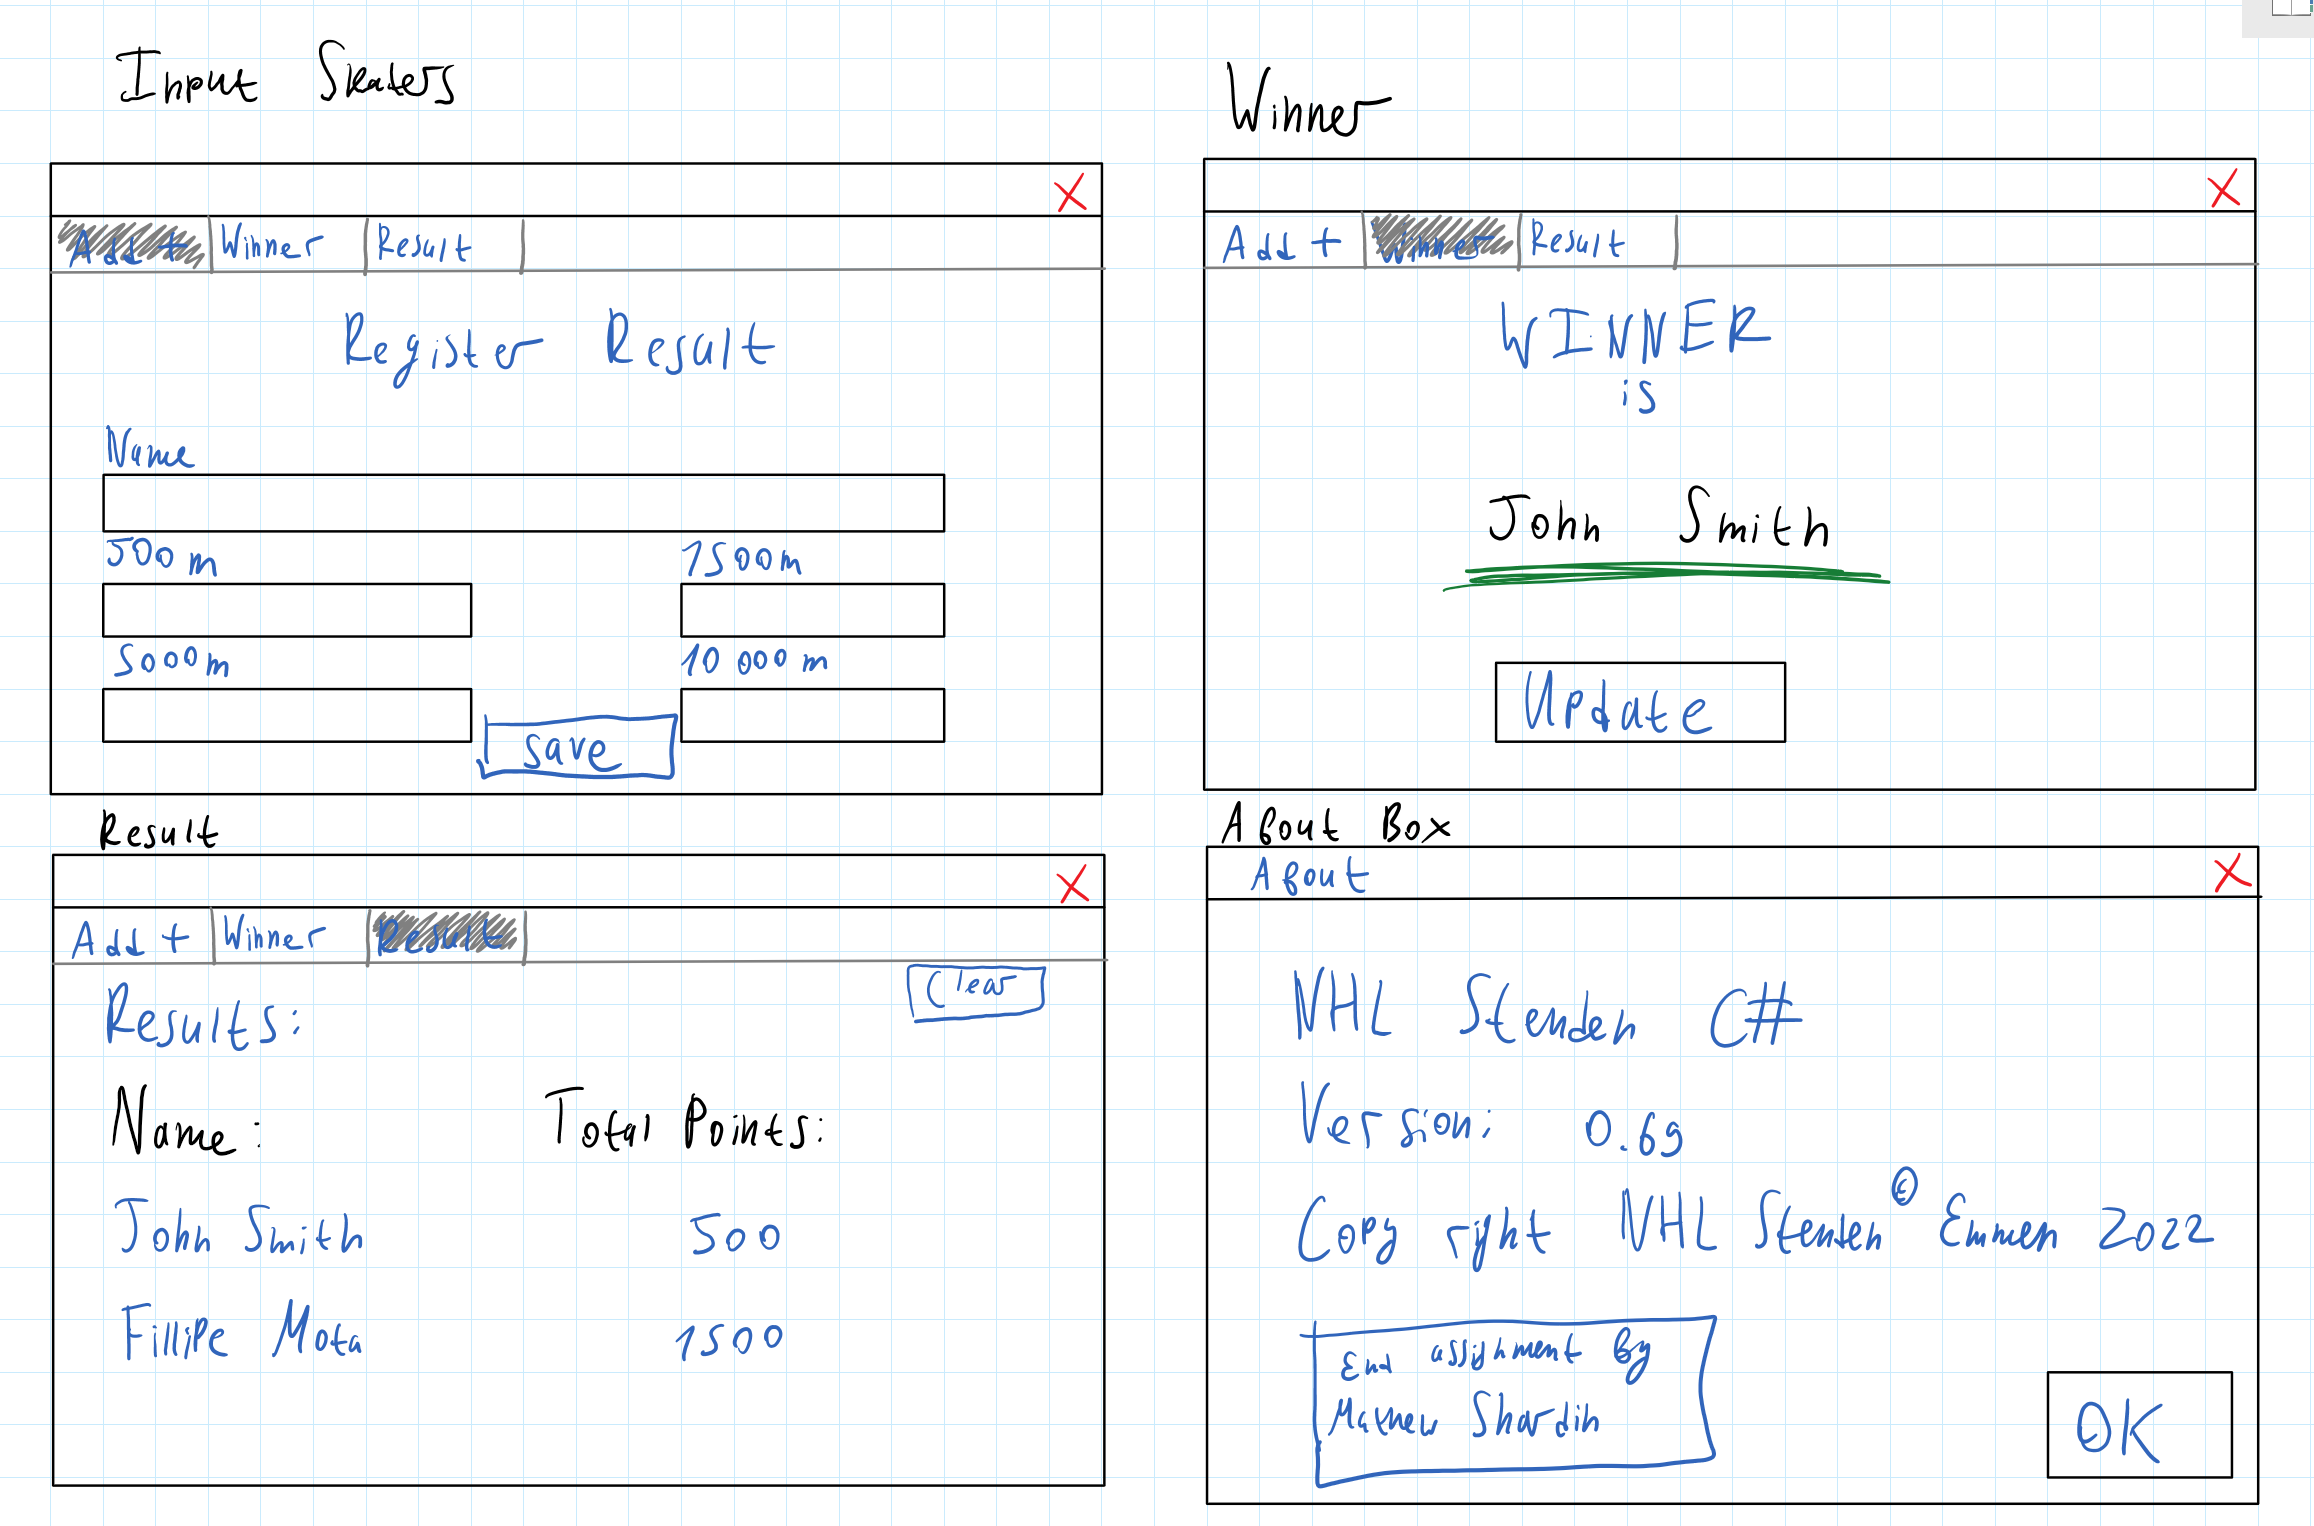 Input Skaters
Add + Winner Result
Register Result
Name
500m 1500m
5000m 10 000 m
save
Winner
Add + Winner Result
WINNER
is
John Smith
Update
Result
Add + Winner Result
Results: Clear
Name: Total Points:
John Smith 500
Fillipe Mota 1500
About Box
About
NHL Stenden C#
Version: 0.69
Copy right NHL Stenden © Emmen 2022
End assignment By
Mathew Shardin
OK